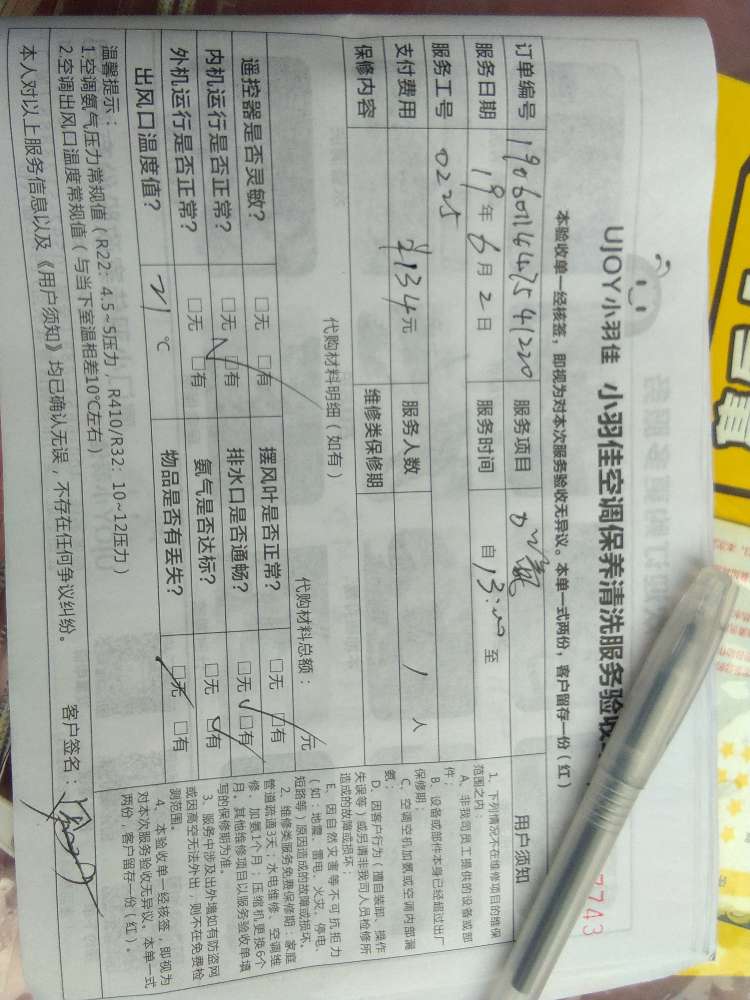 UJOY小羽佳 小羽佳空调保养清洗服务验收
本验收单一经核签，即视为对本次服务验收无异议。本单一式两份，客户留存一份（红）
7743
订单编号 服务项目
服务日期 19年6月2日 服务时间 自13:00至
服务工号 0225
支付费用 ¥134元 服务人数 1人
保修内容 维修类保修期
代购材料明细（如有） 代购材料总额： 元
遥控器是否灵敏? □无 □有 摆风叶是否正常? □无 □有
内机运行是否正常? □无 □有 排水口是否通畅? □无 □有
外机运行是否正常? □无 □有 氨气是否达标? □无 □有
出风口温度值? 21℃ 物品是否有丢失? □无 □有
温馨提示：
1.空调氨气压力常规值（R22：4.5~5压力，R410/R32：10~12压力）
2.空调出风口温度常规值（与当下室温相差10℃左右）
本人对以上服务信息以及《用户须知》均已确认无误，不存在任何争议纠纷。 客户签名：
用户须知
1、下列情况不在维修项目的维保
范围之内：
A、非我司员工提供的设备或部
件；
B、设备或部件本身已经超过出厂
保修期；
C、空调空机加氨或空调内部漏
氨；
D、因客户行为（擅自装卸、操作
失误等）或另请非我司人员检修所
造成的故障或损坏；
E、因自然灾害等不可抗拒力
（如：地震、雷电、火灾、停电、
短路等）原因造成的故障或损坏。
2、维修类服务免费保修期：家庭
管道疏通3天；水电维修、空调维
修、加氨1个月；压缩机更换6个
月。其他维修项目以服务验收单填
写的保修期为准。
3、服务中涉及出外墙如有防盗网
或因高空无法外出，则不在免费检
测范围。
4、本验收单一经核签，即视为
对本次服务验收无异议。本单一式
两份，客户留存一份（红）。